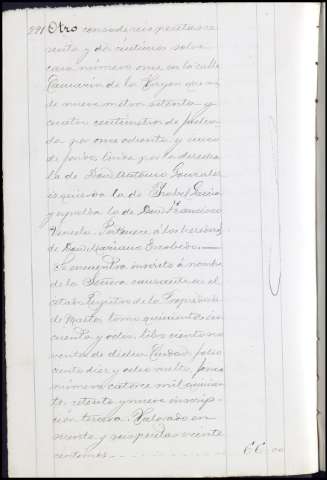 291 Otro censo de seis pesetas se
senta y dos céntimos sobre
casa número once en la calle
Camarín de la Virgen que mi
de nueve metros setenta y
cuatro centímetros de facha
da por once ochenta y cinco
de fondo, linda por la derecha
la de Don Antonio Gonzalez
izquierda la de Isabel García
y espalda la de Don Francisco
Varela. Pertenece á los herederos
de Don Mariano Escobedo.
Se encuentra inscrito á nombre
de la Señora causante en el
citado Registro de la Propiedad
de Martos, tomo quinientos cin
cuenta y ocho, libro ciento no
venta de dicha Ciudad, folio
ciento diez y ocho vuelto, finca
número catorce mil quinien
tos setenta y nueve inscrip
ción tercera. Valorado en
sesenta y seis pesetas veinte
céntimos 66,20